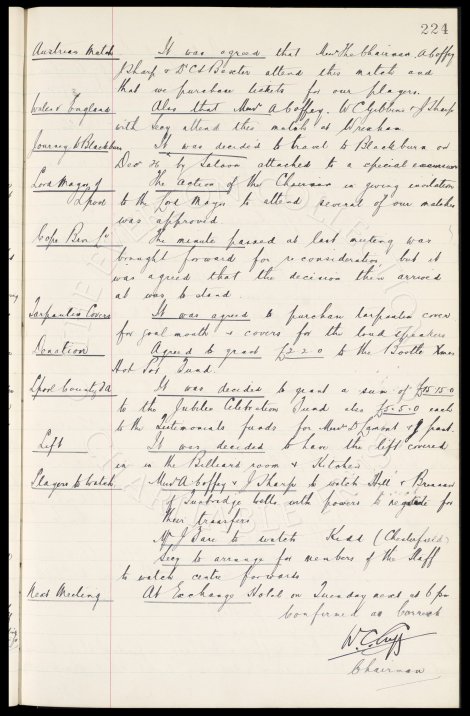 224
Austrian Match It was agreed that Messrs The Chairman, A Coffey
J Sharp & Dr C S Baxter attend this match and
that we purchase tickets for our players.
Wales v England Also that Messrs A Coffey, W C Gibbins & J Sharp
with Secy attend this match at Wrexham
Journey to Blackburn It was decided to travel to Blackburn on
Dec 26 by Saloon attached to a special excursion
Lord Mayor of The action of the Chairman in giving invitation
L'pool to the Lord Mayor to attend several of our matches
was approved
The minute passed at last meeting was
brought forward for reconsideration, but it
was agreed that the decision then arrived
at was to stand.
Tarpaulin Covers It was agreed to purchase tarpaulin cover
for goal mouth & covers for the loud speakers
Donation Agreed to grant £2.2.0 to the Bootle Xmas
Hot Pot Fund.
Lpool County F.A It was decided to grant a sum of £15.15.0
to the Jubilee Celebration Fund also £5.5.0 each
to the Testimonials funds for Messrs
Lift It was decided to have the lift covered
in in the Billiard room & Kitchen
Players to Watch Messrs A Coffey & J Sharp to watch Hill &
of Tunbridge Wells with powers to negotiate for
their transfers
Mr J Fare to watch Kidd (Chesterfield)
Secy to arrange for members of the Staff
to watch centre forwards
Next Meeting At Exchange Hotel on Tuesday next at 6 pm
Confirmed as Correct
W.C. Cuff
Chairman